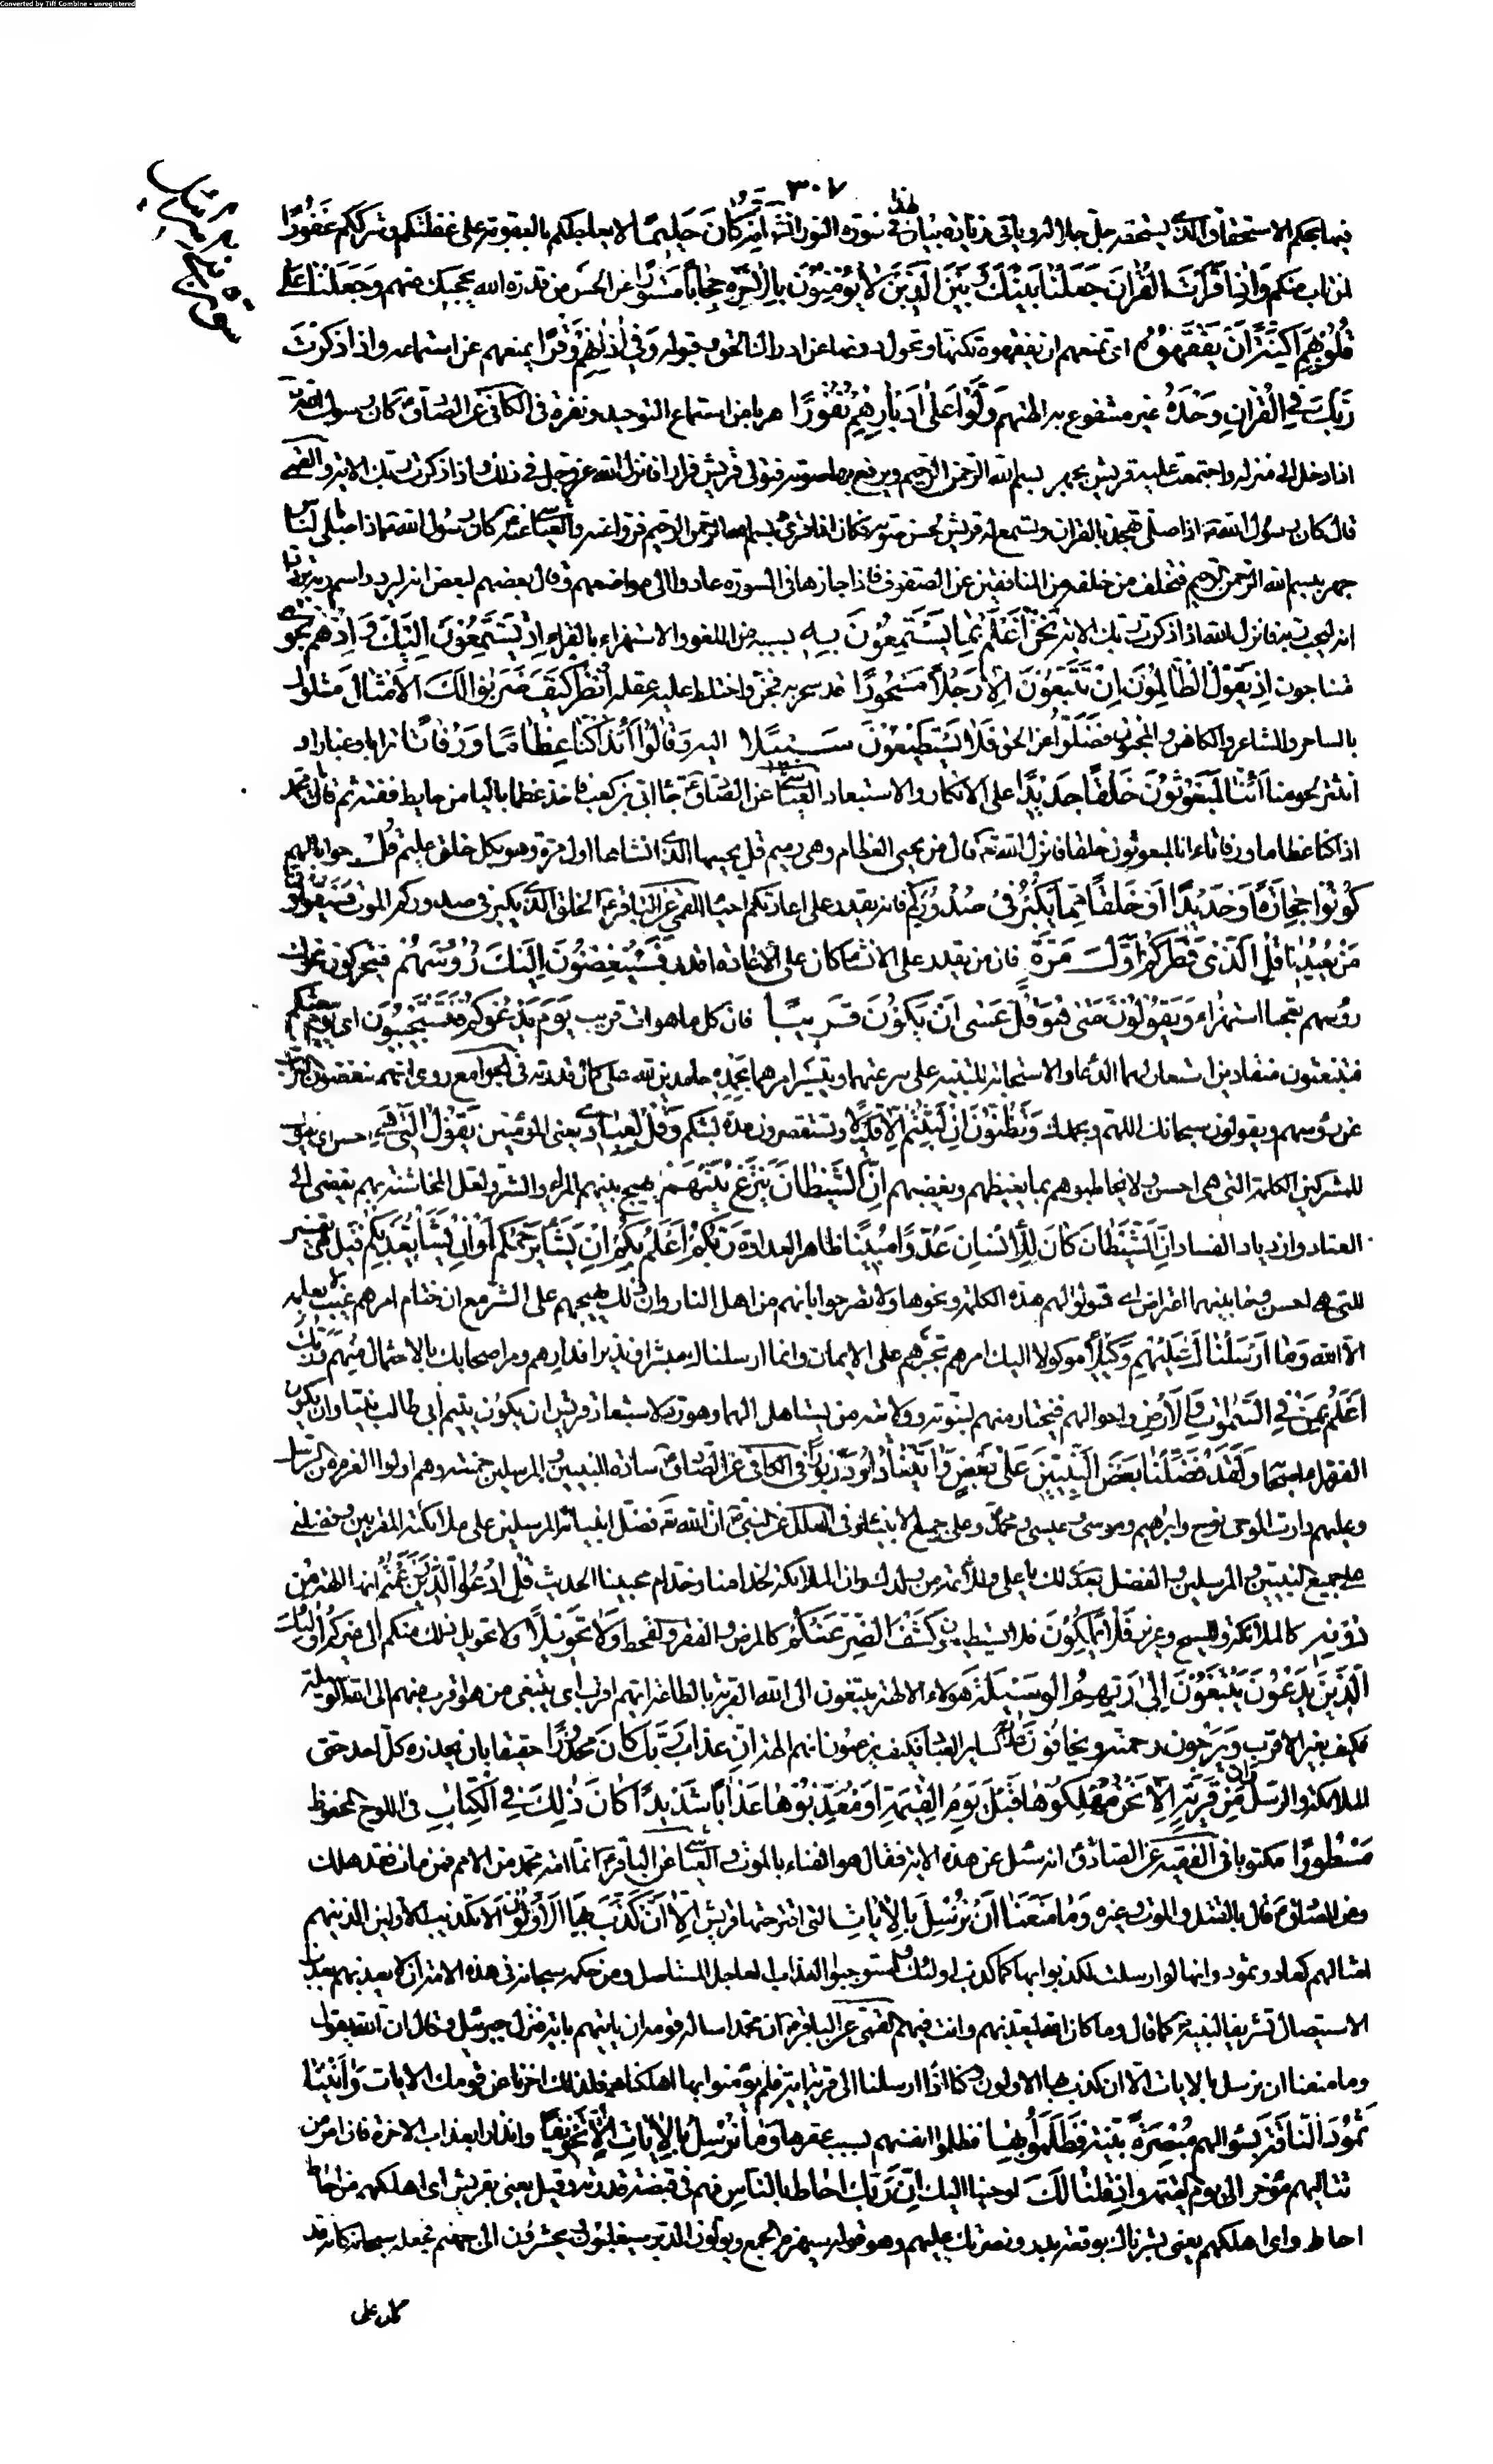 Converted by Tiff Combine - unregistered
٣٠٧
فيما يحكم الاستحقاق الذي يستحقه جل جلاله ويأتي زيادة بيان لهذا في سورة النور انشاء الله انه كان حليما لا يعاجلكم بالعقوبة على غفلتكم وشرككم غفورا
لمن تاب منكم وَاِذا قَرَأْتَ الْقُرْآنَ جَعَلْنا بَيْنَكَ وَبَيْنَ الَّذينَ لا يُؤْمِنُونَ بِالْآخِرَةِ حِجاباً مَسْتُوراً عن الحس من قدرة الله يحجبك عنهم وَجَعَلْنا عَلى
قُلُوبِهِمْ اَكِنَّةً اَنْ يَفْقَهُوهُ اي تمنعهم ان يفقهوه تكنها وتحول دونها عن ادراك الحق وقبوله وَفي آذانِهِمْ وَقْراً يمنعهم عن استماعه واذا ذكرت
رَبَّكَ فِي الْقُرْآنِ وَحْدَهُ غير مشفوع به الهتهم وَلَّوْا عَلى اَدْبارِهِمْ نُفُوراً هربا من استماع التوحيد ونفرة في الكافي عن الصادق كان رسول الله
اذا دخل الى منزله واجتمعت عليه قريش يجهر ببسم الله الرحمن الرحيم ويرفع بها صوته فتولى قريش فرارا فانزل الله عز وجل في ذلك واذا ذكرت ربك الاية والقمي
قال كان رسول الله اذا صلى تهجد بالقران وتستمع له قريش لحسن صوته فكان اذا قرء بسم الله الرحمن الرحيم فروا عنه والعياشي عنه كان رسول الله اذا صلى بالناس
جهر ببسم الله الرحمن الرحيم فتخلف من خلفه من المنافقين عن الصفوف فاذا جازها في السورة عادوا الى مواضعهم وقال بعضهم لبعض انه ليردد اسم ربه تردادا
انه ليحب ربه فانزل الله اذا ذكرت ربك الاية نَحْنُ اَعْلَمُ بِما يَسْتَمِعُونَ بِهِ بسببه من اللغو والاستهزاء بالقران اِذْ يَسْتَمِعُونَ اِلَيْكَ وَاِذْ هُمْ نَجْوى
متناجون اِذْ يَقُولُ الظَّالِمُونَ اِنْ تَتَّبِعُونَ اِلَّا رَجُلاً مَسْحُوراً قد سحر به فجن واختلط عليه عقله اُنْظُرْ كَيْفَ ضَرَبُوا لَكَ الْاَمْثالَ مثلوك
بالساحر والشاعر والكاهن والمجنون فَضَلُّوا عن الحق فَلا يَسْتَطيعُونَ سَبيلاً اليه وَقالُوا اَئِذا كُنَّا عِظاماً وَرُفاتاً ترابا وغبارا و
انتثر لحومنا اَئِنَّا لَمَبْعُوثُونَ خَلْقاً جَديداً على الانكار والاستبعاد العياشي عن الصادق جاء ابي بن كعب فاخذ عظما باليا من حايط ففته ثم قال يا محمد
اذا كنا عظاما ورفاتا ءانا لمبعوثون خلقا فانزل الله قال من يحيي العظام وهي رميم قل يحييها الذي انشأها اول مرة وهو بكل خلق عليم قُلْ جوابا لهم
كُونُوا حِجارَةً اَوْ حَديداً اَوْ خَلْقاً مِمَّا يَكْبُرُ في صُدُورِكُمْ فانه يقدر على اعادتكم احياء القمي عن الباقر الخلق الذي يكبر في صدوركم الموت فَسَيَقُولُونَ
مَنْ يُعيدُنا قُلِ الَّذي فَطَرَكُمْ اَوَّلَ مَرَّةٍ فان من يقدر على الانشاء كان على الاعادة اقدر فَسَيُنْغِضُونَ اِلَيْكَ رُؤُسَهُمْ فيحركون نحوك
رؤسهم تعجبا استهزاء وَيَقُولُونَ مَتى هُوَ قُلْ عَسى اَنْ يَكُونَ قَريباً فان كل ما هو ات قريب يَوْمَ يَدْعُوكُمْ فَتَسْتَجيبُونَ اي يوم يبعثكم
فتنبعثون منقادين استعار لهما الدعاء والاستجابة للتنبيه على سرعتهما وتيسر امرهما بِحَمْدِهِ حامدين لله على كمال قدرته في الجوامع روى انهم ينفضون التراب
عن رؤسهم ويقولون سبحانك اللهم وبحمدك وَتَظُنُّونَ اِنْ لَبِثْتُمْ اِلَّا قَليلاً وتستقصرون مدة لبثكم وَقُلْ لِعِبادي يعني المؤمنين يَقُولُوا الَّتي هِيَ احسن اي يقولوا
للمشركين الكلمة التي هي احسن ولا يخاطبوهم بما يغيظهم ويغضبهم اِنَّ الشَّيْطانَ يَنْزَغُ بَيْنَهُمْ يهيج بينهم المراء والشر ولعل المخاشنة بهم يفضي الى
العناد وازدياد الفساد اِنَّ الشَّيْطانَ كانَ لِلْاِنْسانِ عَدُوًّا مُبيناً ظاهر العداوة رَبُّكُمْ اَعْلَمُ بِكُمْ اِنْ يَشَأْ يَرْحَمْكُمْ اَوْ اِنْ يَشَأْ يُعَذِّبْكُمْ قيل هي تفسير
للتي هي احسن وما بينهما اعتراض اي قولوا لهم هذه الكلمة ونحوها ولا تصرحوا بانهم من اهل النار وان ذلك يهيجهم على الشر مع ان ختام امرهم غيب لا يعلمه
الا الله وَما اَرْسَلْناكَ عَلَيْهِمْ وَكيلاً موكولا اليك امرهم تجبرهم على الايمان وانما ارسلناك مبشرا ونذيرا فدارهم ومر اصحابك بالاحتمال منهم وَرَبُّكَ
اَعْلَمُ بِمَنْ فِي السَّمواتِ وَالْاَرْضِ واحوالهم فيختار منهم لنبوته وولايته من يستاهل لهما وهو رد لاستبعاد قريش ان يكون يتيم ابي طالب نبيا وان يكون
وَلَقَدْ فَضَّلْنا بَعْضَ النَّبِيّينَ عَلى بَعْضٍ وَآتَيْنا داوُدَ زَبُوراً في الكافي عن الصادق سادة النبيين والمرسلين خمسة وهم اولوا العزم من الرسل
وعليهم دارت الرحى نوح وابراهيم وموسى وعيسى ومحمد وعلى جميع الانبياء وفي العلل عن النبي ان الله فضل انبياءه المرسلين على ملائكته المقربين وفضلني
على جميع النبيين والمرسلين والفضل بعدي لك يا علي وللأئمة من ولدك وان الملائكة لخدامنا وخدام محبينا الحديث قُلِ ادْعُوا الَّذينَ زَعَمْتُمْ انها الهة من
دونه كالملائكة والمسيح وعزير فَلا يَمْلِكُونَ فلا يستطيعون كَشْفَ الضُّرِّ عَنْكُمْ كالمرض والفقر والقحط وَلا تَحْويلاً ولا تحويل ذلك منكم الى غيركم اُولئِكَ
الَّذينَ يَدْعُونَ يَبْتَغُونَ اِلى رَبِّهِمُ الْوَسيلَةَ هؤلاء الالهة يبتغون الى الله القربة بالطاعة ايهم اقرب اي يبتغي من هو اقرب منهم الى الله الوسيلة
فكيف بغير الاقرب وَيَرْجُونَ رحمته وَيَخافُونَ عذابه كساير العباد فكيف يزعمون انهم الهة اِنَّ عَذابَ رَبِّكَ كانَ مَحْذُوراً حقيقا بان يحذره كل احد حتى
الملائكة والرسل وَاِنْ مِنْ قَرْيَةٍ اِلَّا نَحْنُ مُهْلِكُوها قَبْلَ يَوْمِ الْقِيمَةِ اَوْ مُعَذِّبُوها عَذاباً شَديداً كانَ ذلِكَ فِي الْكِتابِ في اللوح المحفوظ
مَسْطُوراً مكتوبا في الفقيه عن الصادق انه سئل عن هذه الاية فقال هو الفناء بالموت والعياشي عن الباقر انما امة محمد من الامم فمن مات فقد هلك
وعن الصادق قال بالقتل والموت وغيره وَما مَنَعَنا اَنْ نُرْسِلَ بِالْآياتِ التي اقترحتها قريش اِلَّا اَنْ كَذَّبَ بِهَا الْاَوَّلُونَ الا تكذيب الاولين الذين هم
امثالهم كعاد وثمود وانها لو ارسلت لكذبوا بها كما كذب اولئك واستوجبوا العذاب العاجل المستاصل ومن حكمه سبحانه في هذه الامة ان لا يعذبهم بعذاب
الاستيصال تشريفا لنبيه كما قال وما كان الله ليعذبهم وانت فيهم القمي عن الباقر ان محمدا ساله قومه ان ياتيهم باية فنزل جبرئيل وقال ان الله يقول
وما منعنا ان نرسل بالايات الا ان كذب بها الاولون وكنا اذا ارسلنا الى قرية اية فلم يؤمنوا بها اهلكناهم فلذلك اخرنا عن قومك الايات وَآتَيْنا
ثَمُودَ النَّاقَةَ بسؤالهم مُبْصِرَةً بينة فَظَلَمُوا بِها فظلموا انفسهم بسبب عقرها وَما نُرْسِلُ بِالْآياتِ اِلَّا تَخْويفاً وانذارا بعذاب الاخرة فان امر من
مؤخر الى يوم القيمة وَاِذْ قُلْنا لَكَ اوحينا اليك اِنَّ رَبَّكَ اَحاطَ بِالنَّاسِ فهم في قبضة قدرته وقيل يعني بقريش اي اهلكهم من احاط
احاط واي اهلكهم يعني بشرناك بوقعة بدر ونصرتك عليهم وهو قوله سيهزم الجمع ويولون الدبر سيغلبون ويحشرون الى جهنم فجعله سبحانه كانه قد